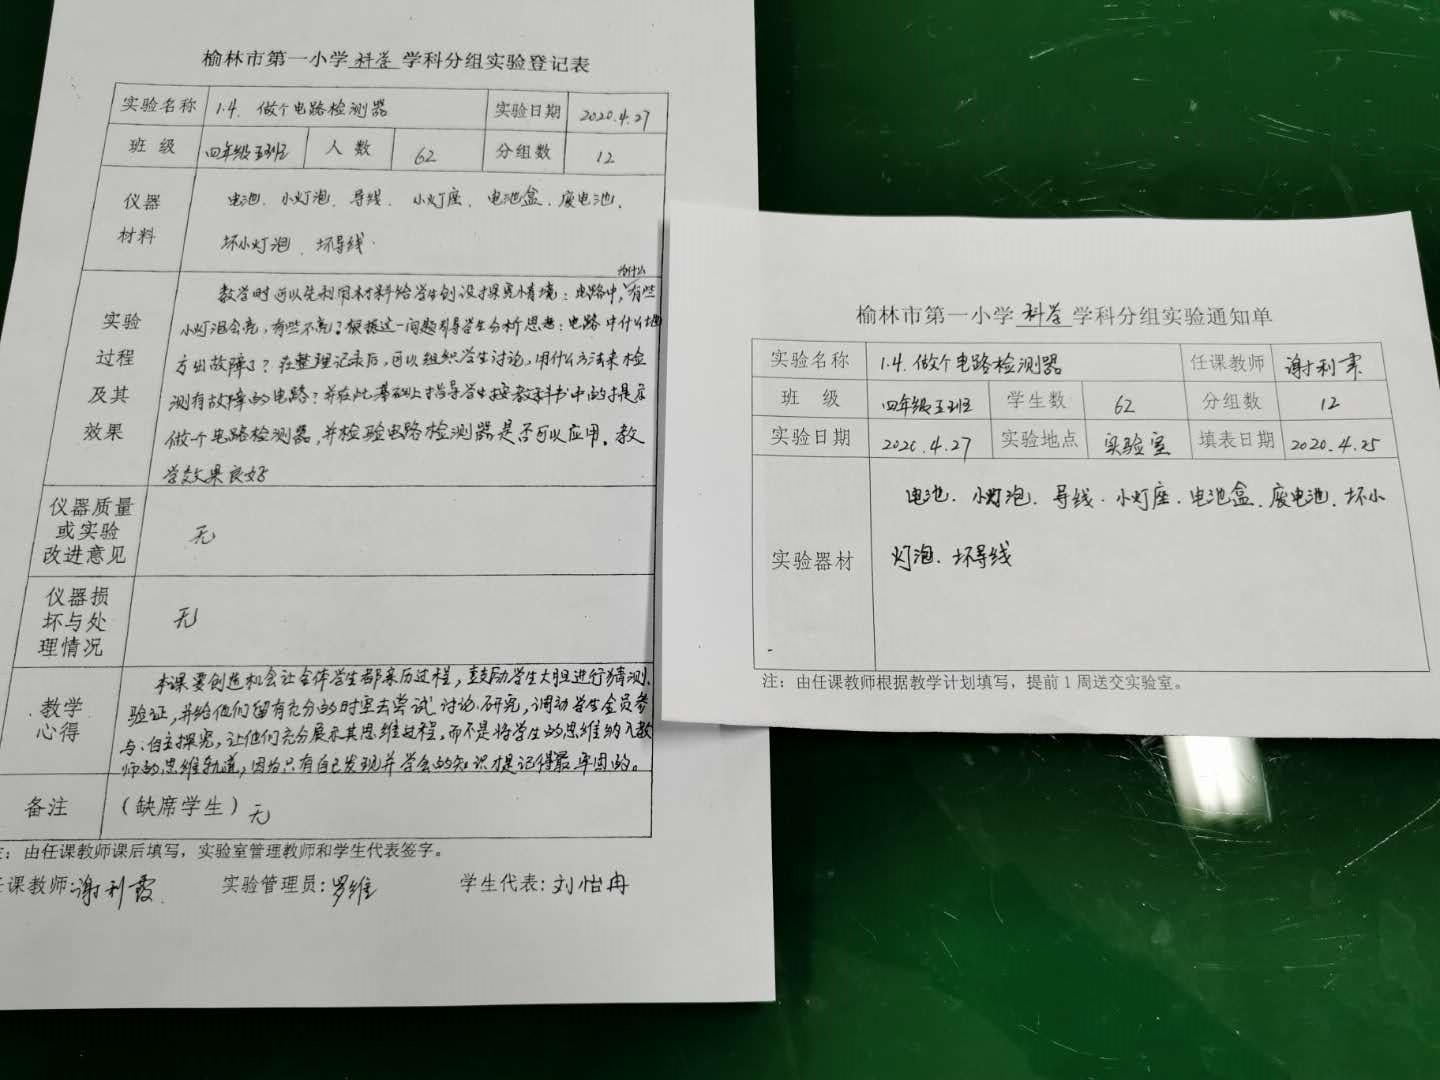 榆林市第一小学 科学 学科分组实验登记表
实验名称 1.4. 做个电路检测器 实验日期 2020.4.27
班 级 四年级五班 人 数 62 分组数 12
仪器 材料 电池、小灯泡、导线、小灯座、电池盒、废电池、
坏小灯泡、坏导线.
实验 过程 及其 效果
教学时可以先利用材料给学生创设探究情境：电路中，为什么有些
小灯泡会亮，有些不亮？根据这一问题引导学生分析思考：电路中什么地
方出故障了？在整理记录后，可以组织学生讨论，用什么方法来检
测有故障的电路？并在此基础上指导学生按教科书中的提示
做一个电路检测器，并检验电路检测器是否可以应用。教
学效果良好
仪器质量 或实验 改进意见 无
仪器损 坏与处 理情况 无
教学 心得
本课要创造机会让全体学生都亲历过程，鼓励学生大胆进行猜测、
验证，并给他们留有充分的时空去尝试、讨论、研究，调动学生全员参
与、自主探究，让他们充分展示其思维过程，而不是将学生的思维纳入教
师的思维轨道，因为只有自己发现并学会的知识才是记得最牢固的。
备注 （缺席学生）无
：由任课教师课后填写，实验室管理教师和学生代表签字。
课教师：谢利霞 实验管理员：罗维 学生代表：刘怡冉
榆林市第一小学 科学 学科分组实验通知单
实验名称 1.4. 做个电路检测器 任课教师 谢利霞
班 级 四年级五班 学生数 62 分组数 12
实验日期 2020.4.27 实验地点 实验室 填表日期 2020.4.25
实验器材 电池、小灯泡、导线、小灯座、电池盒、废电池、坏小
灯泡、坏导线
注：由任课教师根据教学计划填写，提前1周送交实验室。